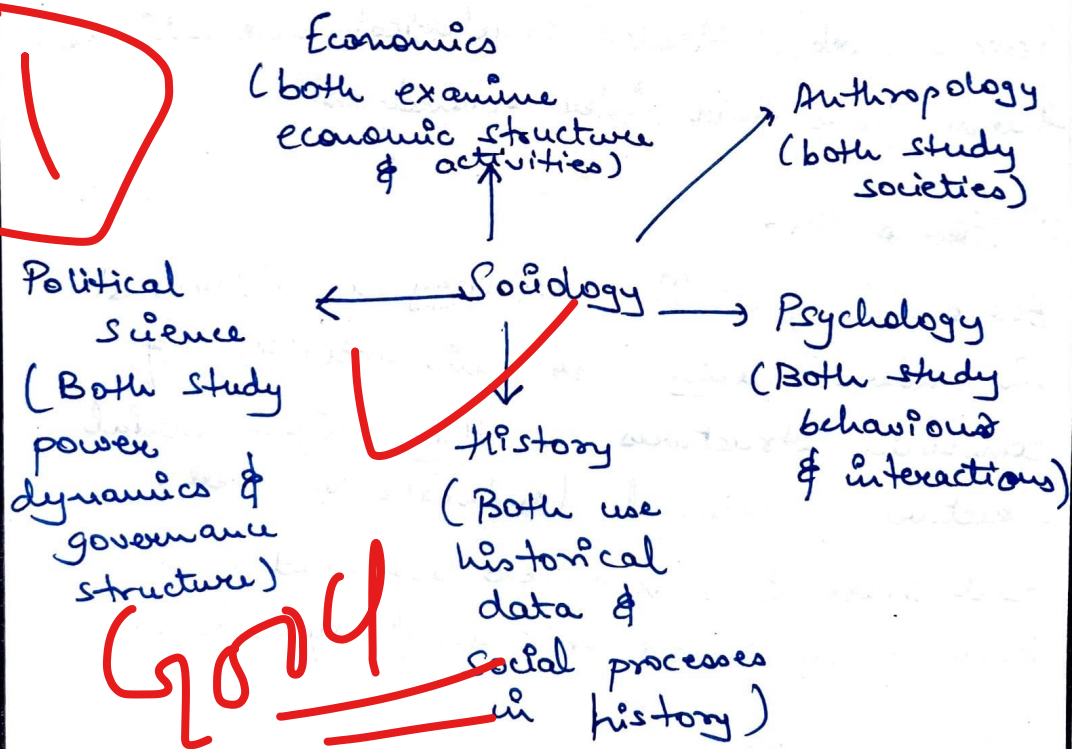 Economics
(both examine
economic structure
& activities)
Anthropology
(both study
societies)
Political
science
(Both study
power
dynamics &
governance
structure)
Sociology
Psychology
(Both study
behaviour
& interactions)
History
(Both use
historical
data &
social processes
in history)
Good